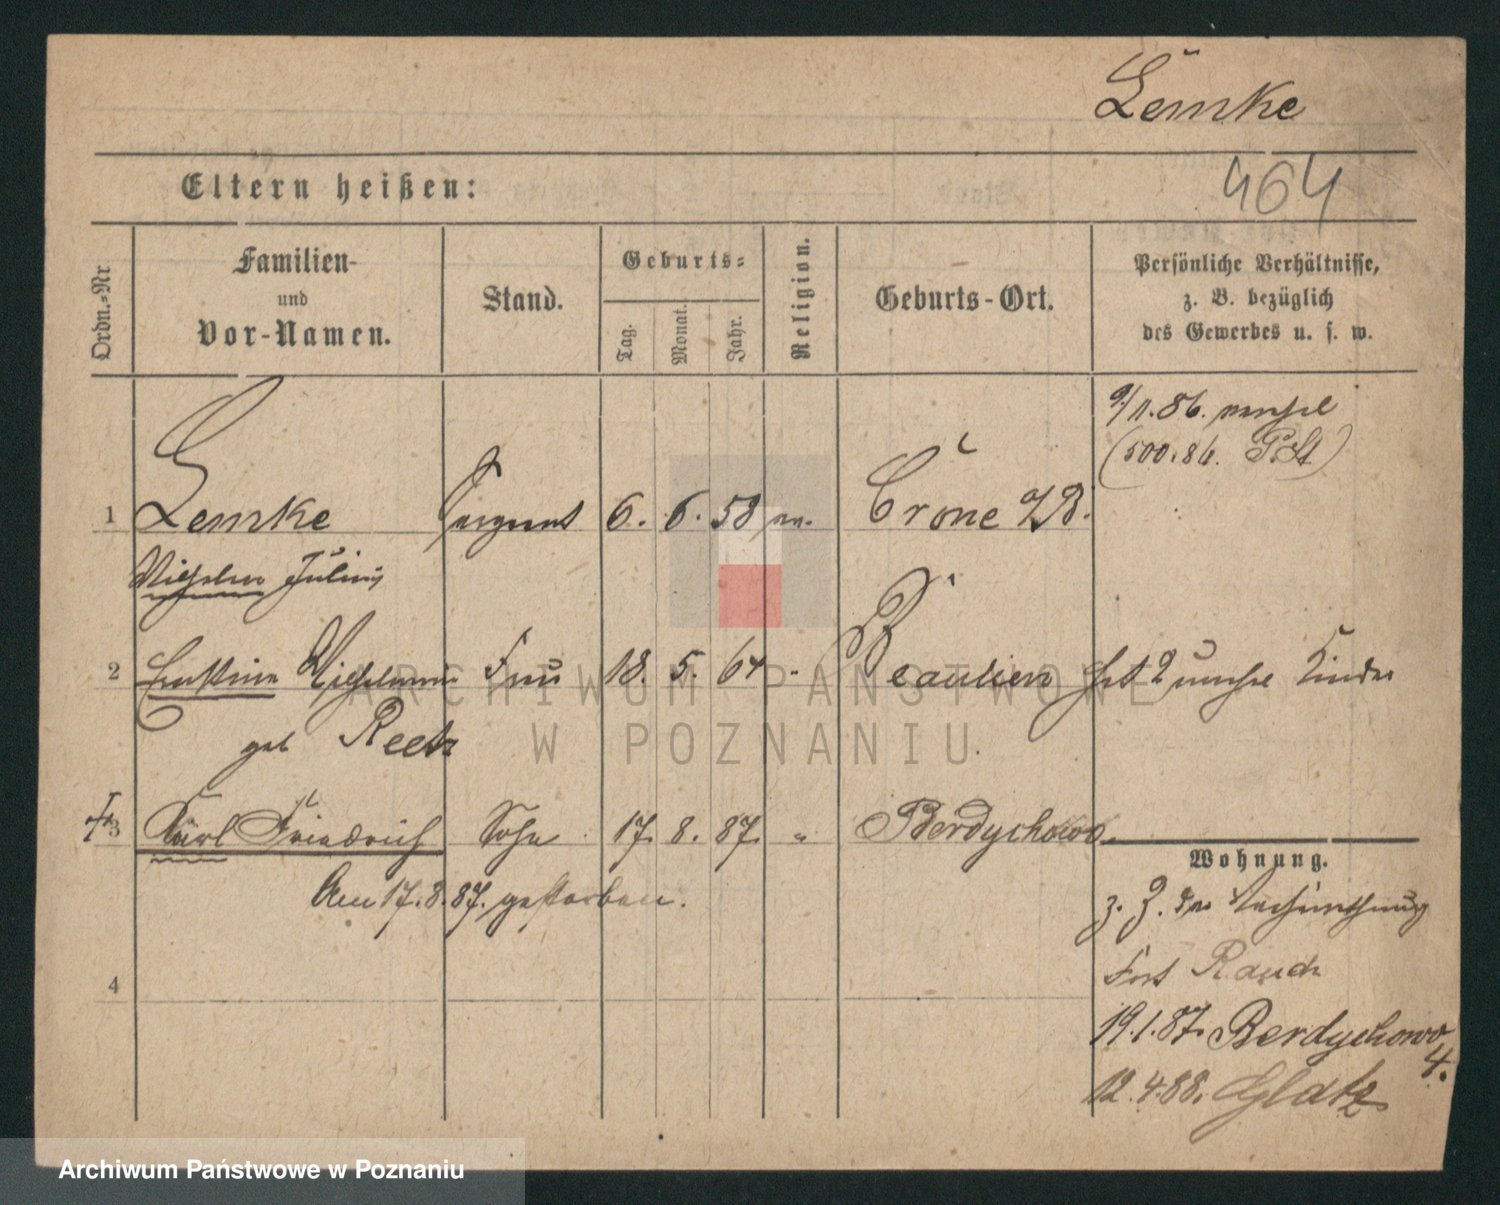 Lemke
464
Eltern heißen:
Ordn.-Nr.
Familien- und Vor-Namen.
Stand.
Geburts-
Tag.
Monat.
Jahr.
Religion.
Geburts-Ort.
Persönliche Verhältnisse,
z. B. bezüglich
des Gewerbes u. s. w.
9/11.86.
(500.86. P.St)
1 Lemke Sergeant 6. 6. 58 ev. Crone B.
Wilhelm Julius
2 Ernstine Wilhelmine Frau 18. 5. 64 - Beaulieu hat 2 unehel Kinder
geb Reetz
3 Karl Friedrich Sohn 17. 8. 87. " Berdychowo.
Am 17.8.87. gestorben.
Wohnung.
z. Z. der
Fort Rauch
19.1.87. Berdychowo
4.
12.4.88. Glatz
4
ARCHIWUM PAŃSTWOWE
W POZNANIU
Archiwum Państwowe w Poznaniu